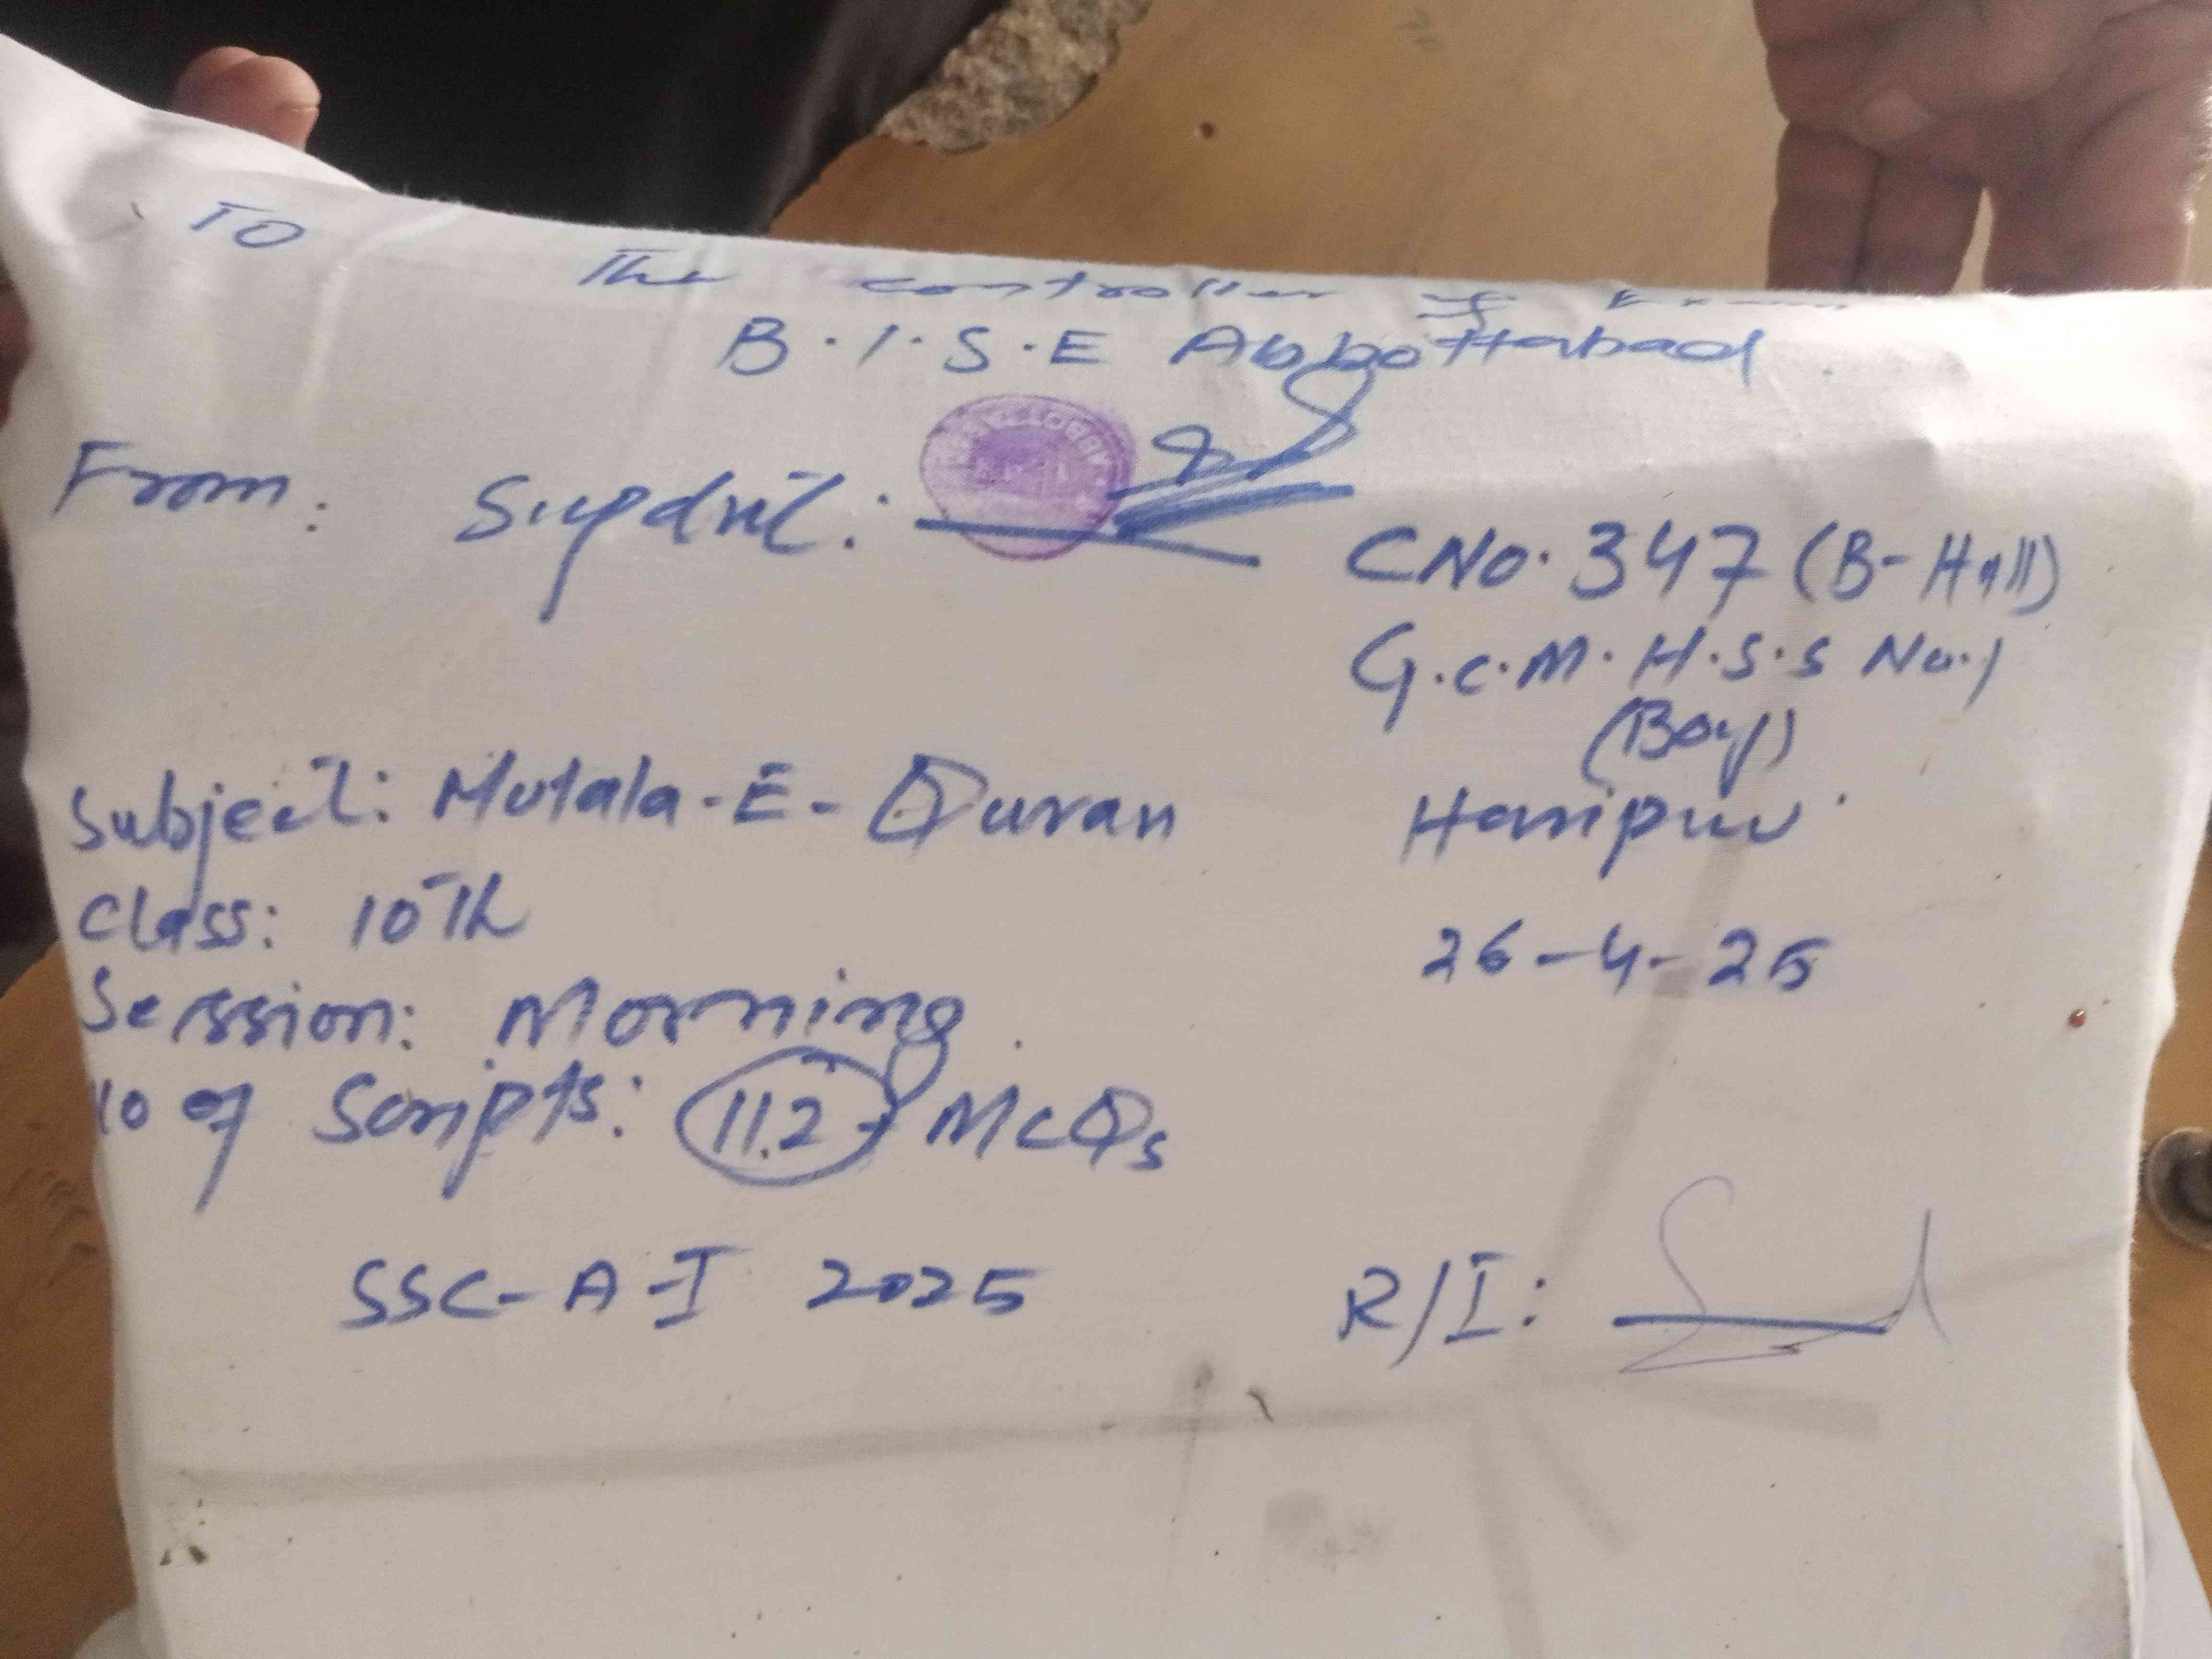 TO
The controller of Exam
B.I.S.E Abbottabad.
From: Supdnt:
CNo. 347 (B-Hall)
G.C.M.H.S.S No.1
(Boys)
Haripur
Subject: Mutala-E-Quran
Class: 10Th
26-4-25
Session: Morning.
No of Scripts: 112 MCQs
SSC-A-I 2025
R/I: